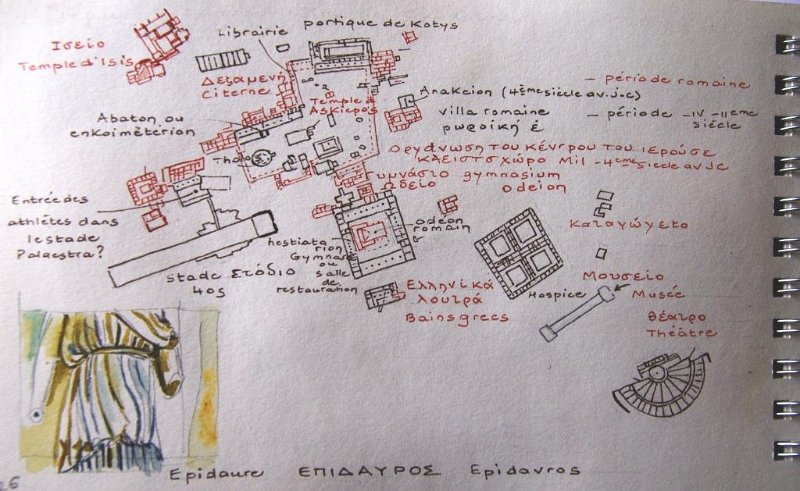 Ισείο
Temple d'Isis
Librairie
portique de Kotys
Δεξαμενή
Citerne
Temple d'
Asklepios
Anakeion (4ème siècle av.j-c)
villa romaine
ρωμαϊκή έ
– période romaine
– période -IV -IIeme
siècle
Abaton ou
enkoimèterion
Tholos
Οργάνωση του κέντρου του ιερού σε
κλειστό χώρο Mil -4eme siecle av JC
Γυμνάσιο gymnasium
Ωδείο
odeion
Entrée des
athlètes dans
le stade
Palaestra?
stade Στάδιο
4os
hestiato
rion
Gymnase
ou
salle
de
restauration
odéon
romain
Ελληνικά
λουτρά
Bains grecs
Hospice
Καταγώγειο
Μουσείο
Musée
Θέατρο
Théâtre
Epidaure ΕΠΙΔΑΥΡΟΣ Epidavros
26